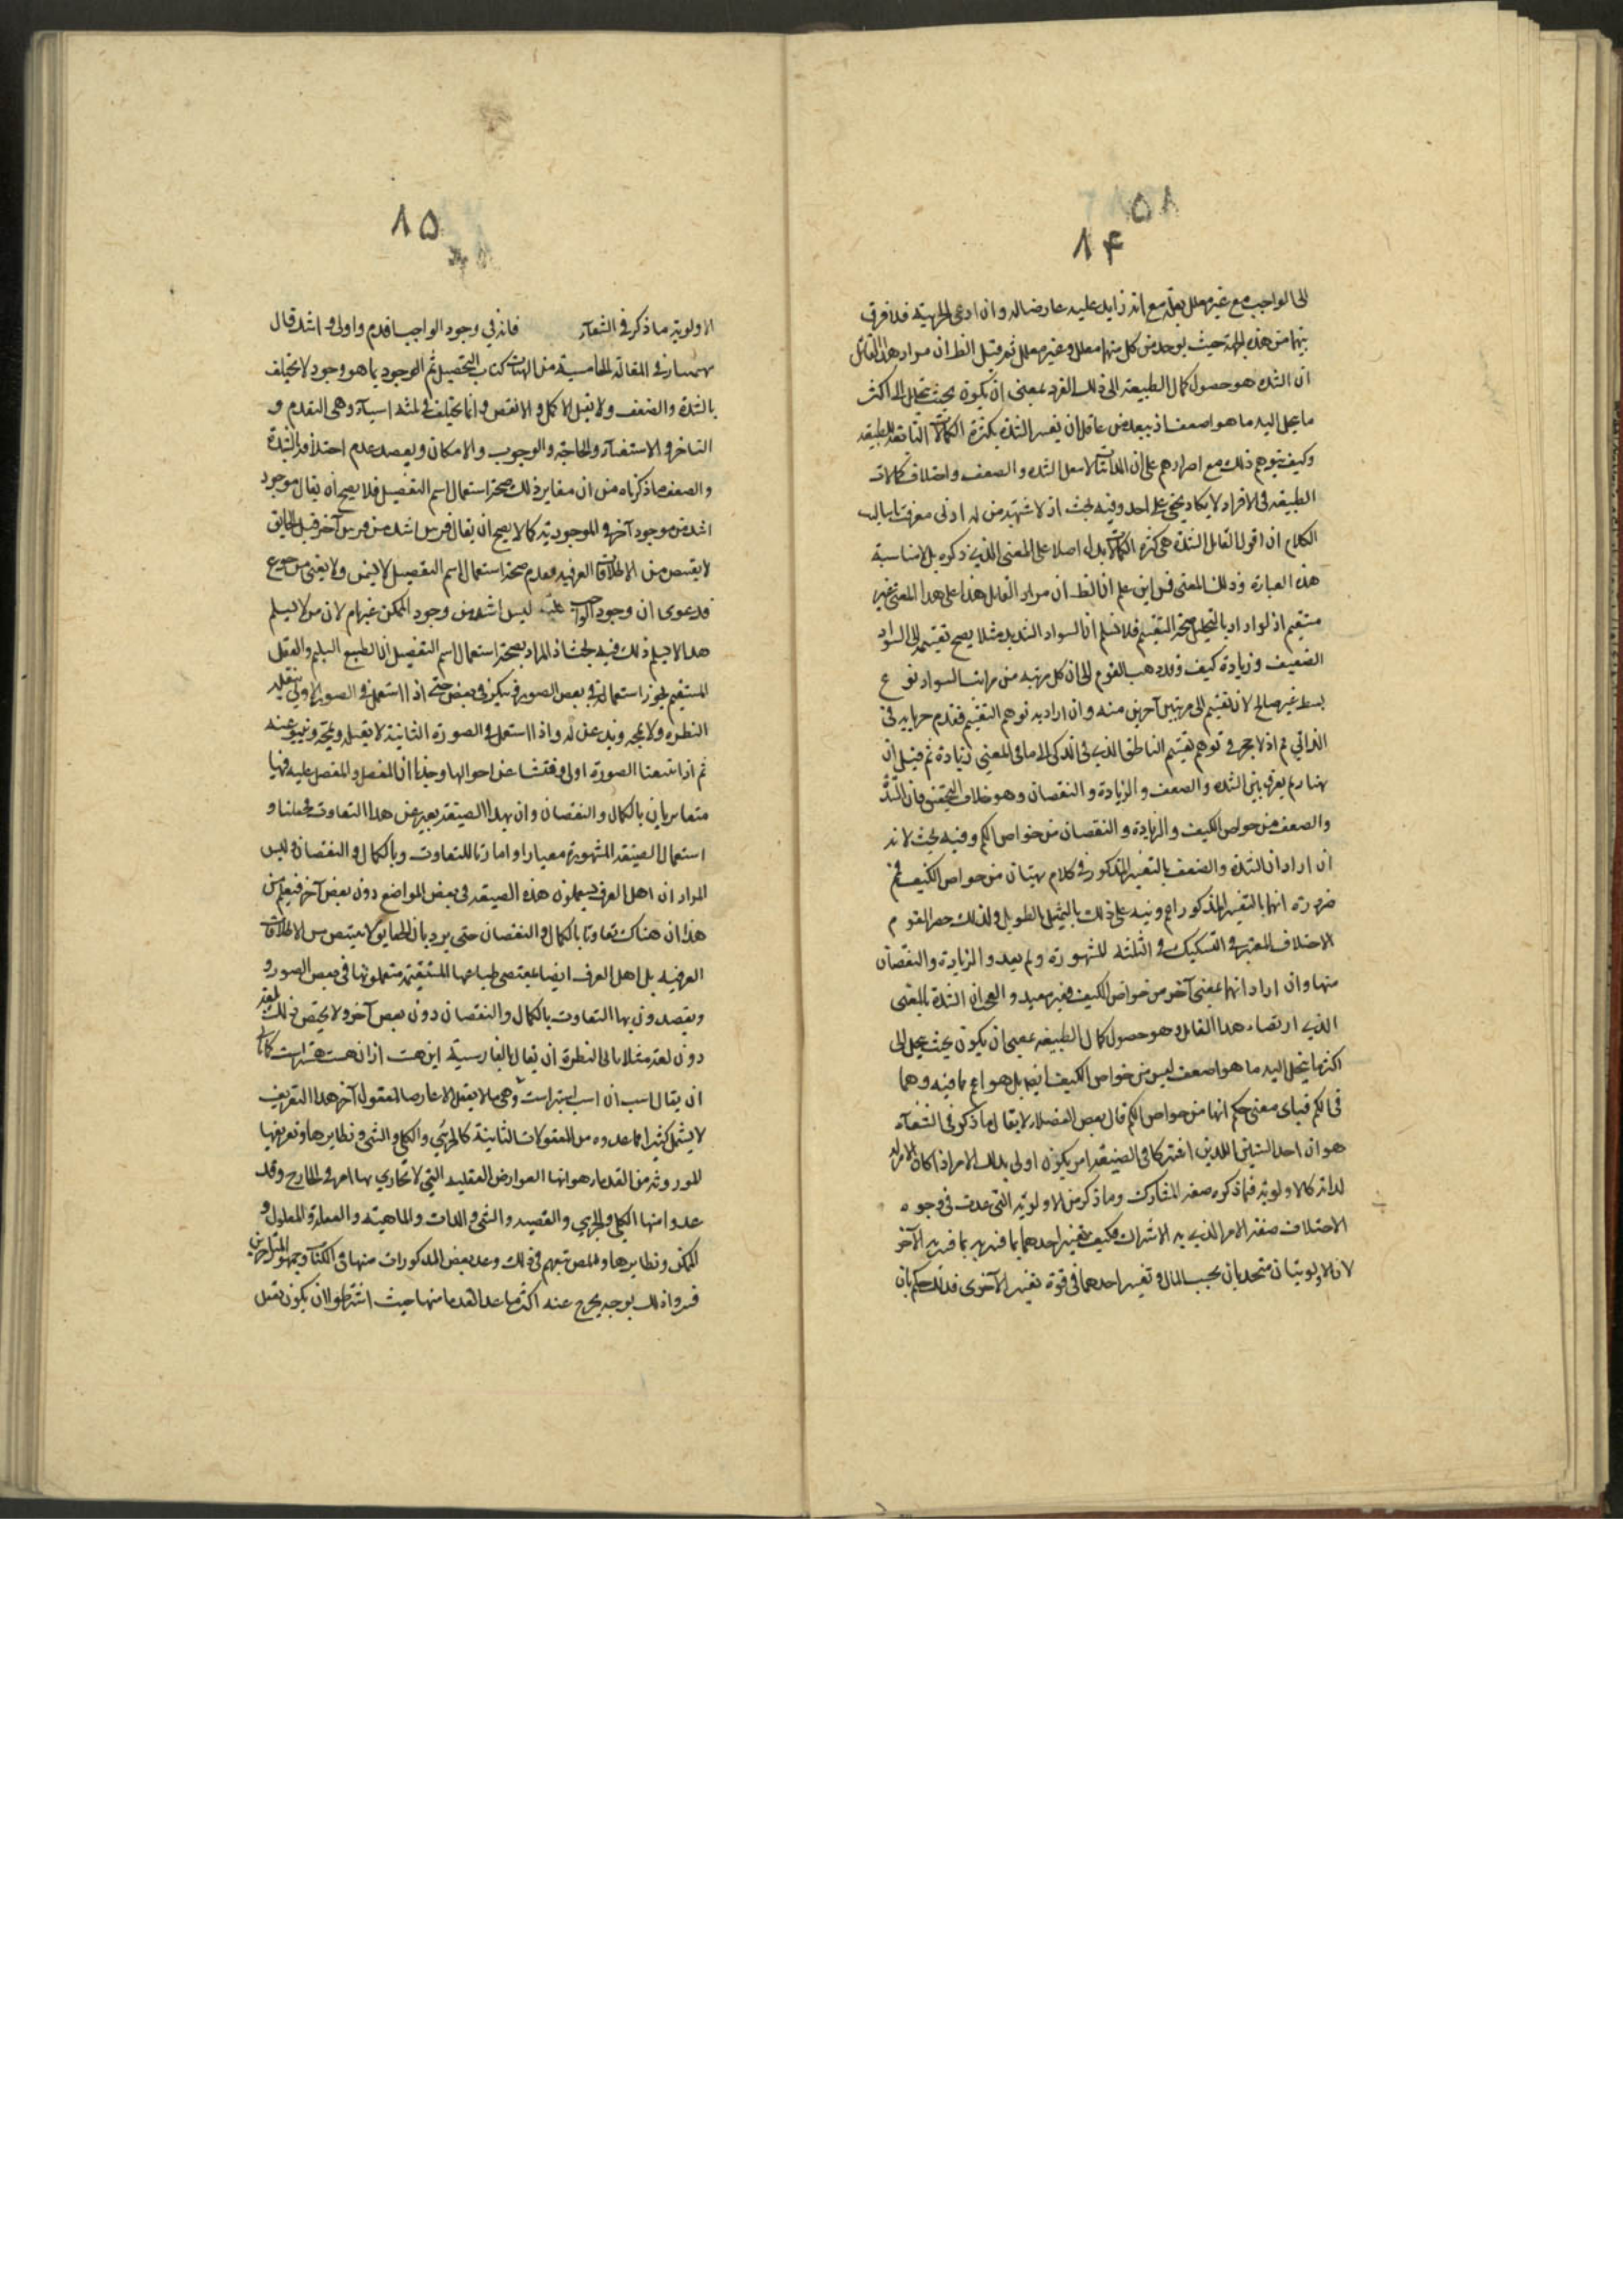 ۵۸
۱۴
الى الواجب مع غير معلل بعلة مع انه زايد عليه عارضا له وان ادعى الجزئية فلا فرق
بينهما من هذه الجهة حيث يوجد من كل منهما معلل وغير معلل ثم قيل الظ ان مراد هذا القائل
ان الشدة هو حصول كمال الطبيعة الى ذلك الفرد بمعنى ان يكون بحيث يتحلل الى اكثر
ما يحل اليه ما هو اضعف اذ يبعد من عاقل ان يفسر الشدة بكثرة الكمالات التابعة للطبيعة
وكيف يتوهم ذلك مع اصرارهم على ان الذاتيات لا تقبل الشدة والضعف واختلاف كمالات
الطبيعة فى الافراد لا يكاد يخفى على احد وفيه بحث اذ لا شبهة من له ادنى معرفة باساليب
الكلام ان قول القائل الشدة هى كثرة الكمالات لا يدل اصلا على المعنى الذي ذكره بل لا مناسبة
هذه العبارة وذلك المعنى فمن اين علم ان الظ ان مراد القائل هذا على هذا المعنى غير
مستقيم اذ لو اراد بالتحليل صحة التقسيم فلا نسلم ان السواد الشديد مثلا يصح تقسيمه الى السواد
الضعيف وزيادة كيف وقد ذهب القوم الى ان كل مرتبة من مراتب السواد نوع
بسيط غير صالح لان تقسيم الى مرتبتين آخرين منه وان اراد به توهم التقسيم فعدم جريانه فى
الذاتي م اذ لا حجر فى توهم تقسيم الناطق الذي فى الذكى الى ما فى الغبي وزيادة ثم قيل ان
بهمنيار لم يفرق بين الشدة والضعف والزيادة والنقصان وهو خلاف التحقيق فان الشدة
والضعف من خواص الكيف والزيادة والنقصان من خواص الكم وفيه بحث لانه
ان اراد ان الشدة والضعف بالتفسير المذكور فى كلام بهمنيار من خواص الكيف فم
ضرورة انهما بالتفسير المذكور اعم ونبه على ذلك بالتمثيل بالطويل ولذلك حصر القوم
الاختلاف المعتبر فى التشكيك فى الثلثة المشهورة ولم يعدوا الزيادة والنقصان
منها وان اراد انهما بمعنى آخر من خواص الكيف فغير مفيد والعجب ان الشدة بالمعنى
الذي ارتضاه هذا القائل وهو حصول كمال الطبيعة بمعنى ان يكون بحيث يحل الى
اكثر مما يتحلل اليه ما هو اضعف ليس من خواص الكيف ايضا بل هو اعم مما فيه ومما
فى الكم فباى معنى حكم انها من خواص الكم قال بعض الفضلاء لا يقال ما ذكر فى الشفاء
هو ان احد الشيئين اللذين اشتركا فى الصفة امر يكون اولى بذلك الامر اذا كان الامر له
لذاته كالاولوية فما ذكره صفة المشارك وما ذكر من الاولوية التى عدت فى وجوه
الاختلاف صفة الامر الذي به الاشتراك فكيف تفسير احدهما بما فسر به الآخر
لان الاولويتان متحدتان بحسب المآل وتفسير احدهما فى قوة تفسير الآخرى فذلك حكم بان
۱۵
الاولوية ما ذكر فى الشفاء فانه في وجود الواجب اقدم واولى واشد قال
بهمنيار فى المقالة الخامسة من الهيات كتاب التحصيل ثم الوجود بما هو وجود لا يختلف
بالشدة والضعف ولا يقبل الاكمل والانقص وانما يختلف فى ثلثة اشياء وهى التقدم و
التاخر والاستغناء والحاجة والوجوب والامكان ويعضد عدم اختلافه بالشدة
والضعف ما ذكرناه من ان معاير ذلك صحة استعمال اسم التفضيل فلا يصح ان يقال موجود
اشد من موجود آخر فى الموجودية كما لا يصح ان يقال فرس اشد من فرس آخر قيل الحقايق
لا يقتنص من الاطلاقات العرفية فعدم صحة استعمال اسم التفضيل لا يسمن ولا يغنى من جوع
فدعوى ان وجود الواجب ليس اشد من وجود الممكن غير تام لان من لا يسلم
هذا لا يسلم ذلك وفيه بحث اذ المراد بصحة استعمال اسم التفضيل ان الطبع السليم والعقل
المستقيم يجوز استعماله فى بعض الصور فى ينكر فى بعض حتى اذا استعمل فى الصورة الاولى يتقبله
النظرة ولا تمجه ويذعن له واذا استعمل فى الصورة الثانية لا يقبله ويمجه وينبو عنه
ثم اذا تتبعنا الصورة اولى وفتشنا عن احوالها وجدنا ان المفضل والمفضل عليه فيها
متغايران بالكمال والنقصان وان بهذا الصيغة يعبر عن هذا التفاوت فجعلنا و
استعمال الصيغة المشهورة معيارا وامارة للتفاوت بالكمال والنقصان وليس
المراد ان اهل العرف يستعملون هذه الصيغة فى بعض المواضع دون بعض آخر فيعلم من
هذا ان هناك تفاوتا بالكمال والنقصان حتى يرد بان الحقايق لا تقتنص من الاطلاقات
العرفية بل اهل العرف ايضا بمقتضى طباعهم المستقيمة يستعملونها فى بعض الصور و
ويقصدون بها التفاوت بالكمال والنقصان دون بعض آخر ولا يختص ذلك بلغة
دون لغة مثلا يابى النظرة ان يقال بالفارسية اين هست از ان هست هستر است كما يابى
ان يقال اسب از ان اسب اسبتر است وهى ما لا يعقل الا عارضا لمعقول آخر هذا التعريف
لا يشمل كثيرا مما عدوه من المعقولات الثانية كالجزئى والكلى والشى ونظايرها وتعريفها
الموروثة من القدماء هو انها العوارض العقلية التي لا تحاذي بها امر فى الخارج وقد
عدوا منها الكلى والجزيى والقضية والشى والذات والماهية والعلة والمعلول و
الممكن ونظايرها والمص تبعهم فى ذلك وعد بعض المذكورات منها فى الكتاب وجمهور المتاخرين
فسروا ذلك بوجه يخرج عنه اكثر ما عد القدما منها حيث اشترطوا ان يكون تعقل